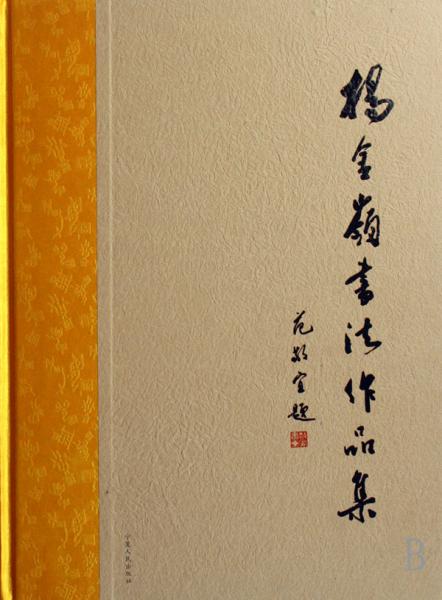 楊金嶺书法作品集
范敬宜题
宁夏人民出版社
B